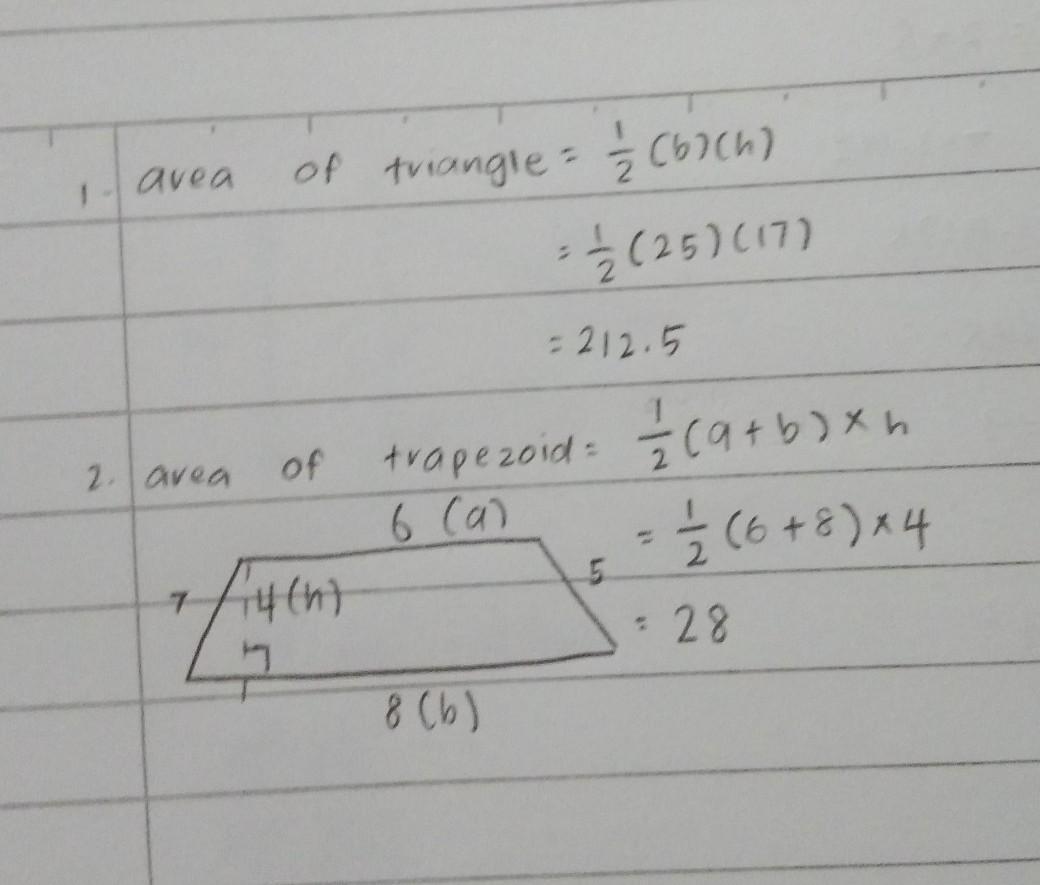 1. area of triangle = 1/2 (b)(h)
= 1/2 (25)(17)
= 212.5
2. area of trapezoid = 1/2 (a+b) × h
6 (a)
= 1/2 (6+8) × 4
7
4(h)
5
= 28
8 (b)